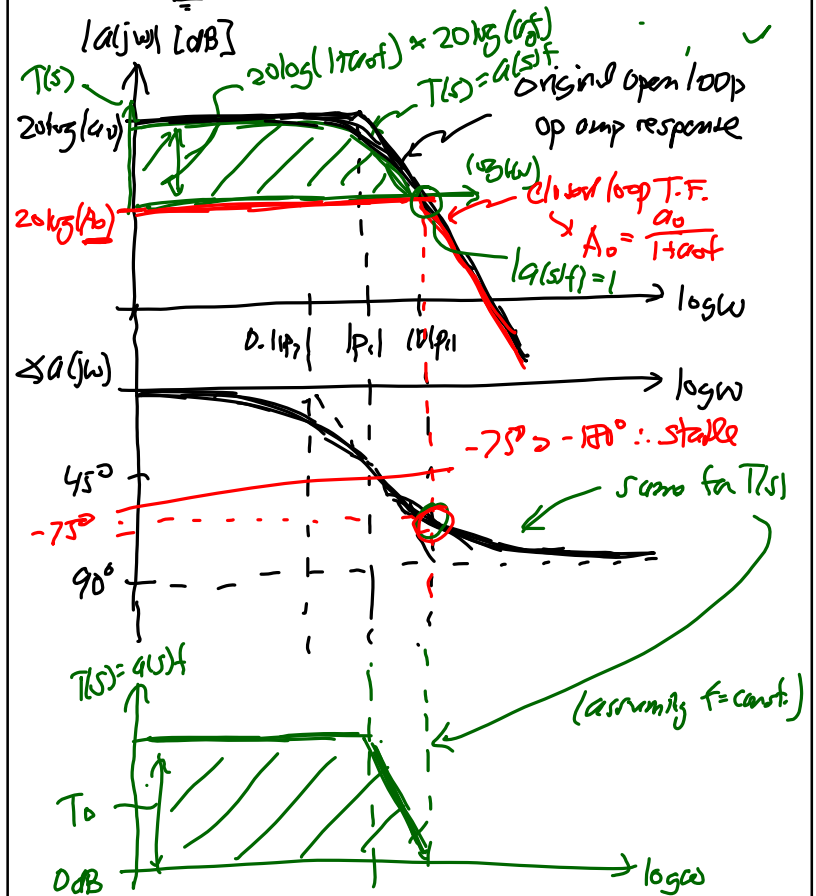 |a(jω)| [dB]
T(s)
20log(1+a₀f) ≈ 20log(a₀f)
T(s)=a(s)f
original open loop
op amp response
20log(a₀)
log(ω)
closed loop T.F.
20log(A₀)
↳ A₀ = a₀/(1+a₀f)
|a(s)f|=1
logω
0.1|p₁| |p₁| 10|p₁|
∡a(jω)
logω
-75° > -180° ∴ stable
45°
same for T(s)
-75°
90°
T(s)=a(s)f
(assuming f=const.)
T₀
0dB
logω